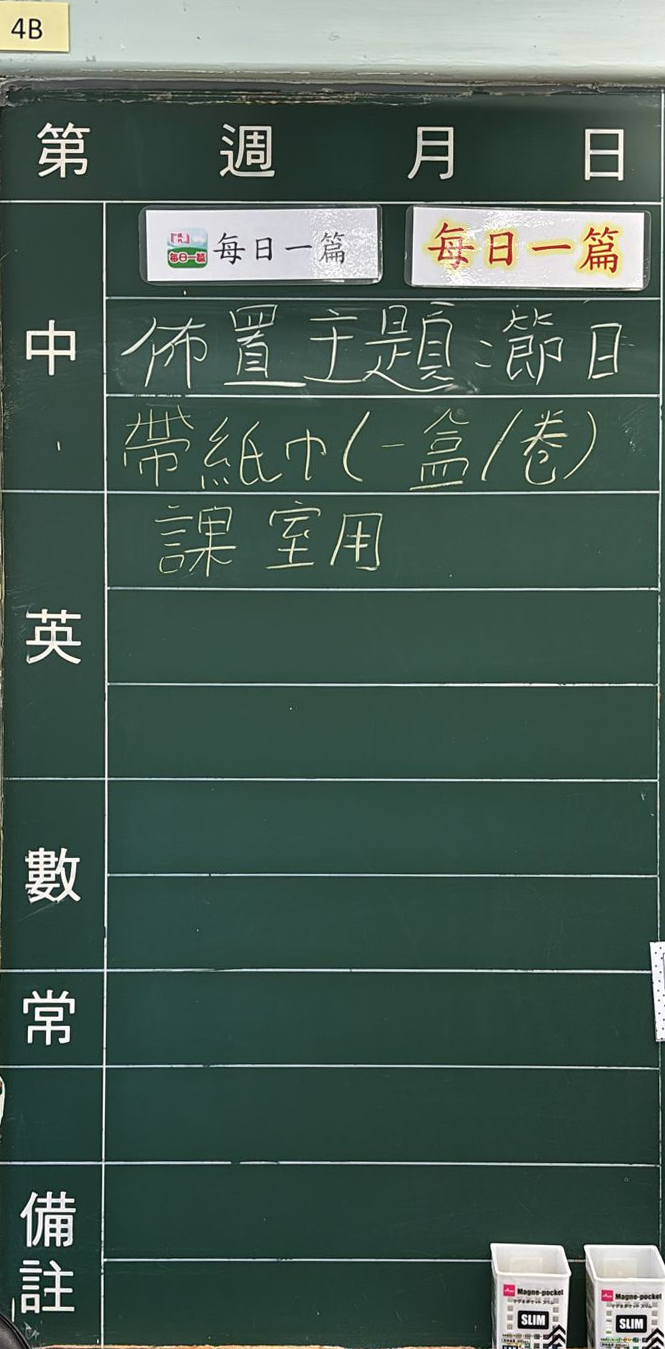 4B
第 週 月 日
每日一篇 每日一篇 每日一篇
中
佈置主題:節日
帶紙巾(一盒/卷)
課室用
英
數
常
備
註
Magne-pocket Magne-pocket
SLIM SLIM